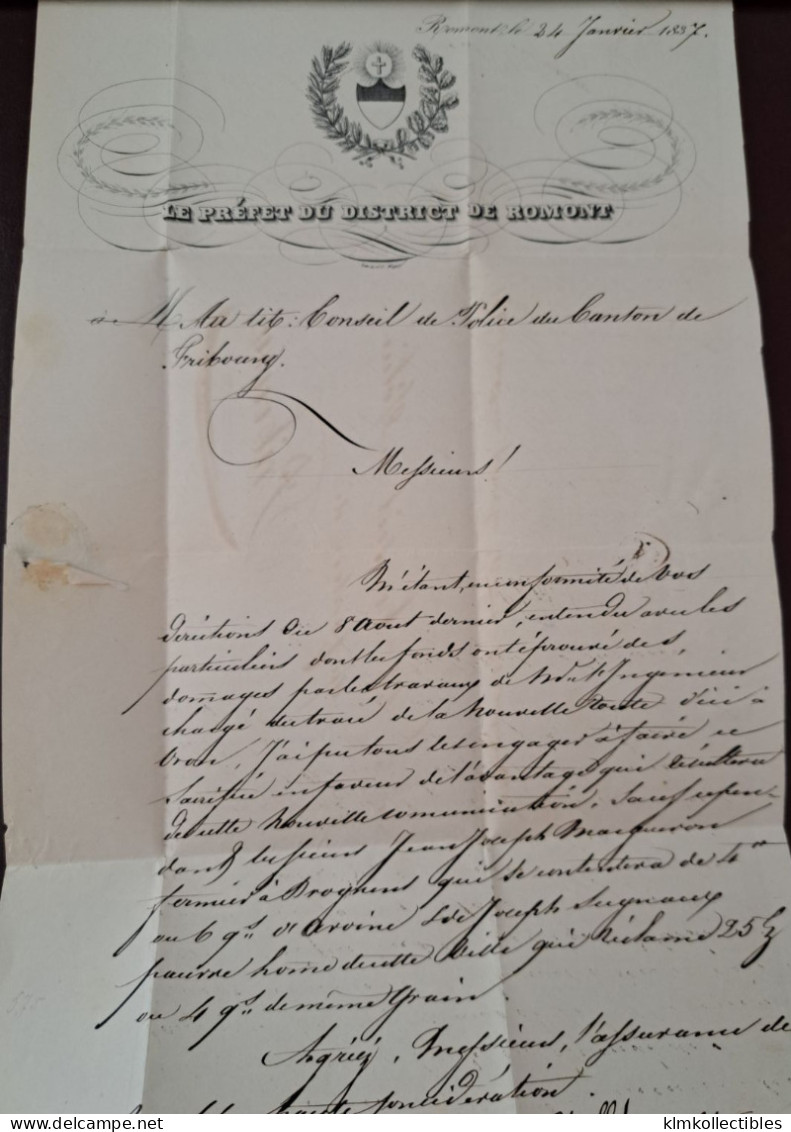 Romont le 24 Janvier 1837.
LE PRÉFET DU DISTRICT DE ROMONT
tit: Conseil de Police du Canton de
Fribourg.
Messieurs!
M'étant, en conformité de vos
diréctions du 8 Août dernier, entendu avec les
particuliers dont les fonds ont éprouvé des
domages par les travaux de l'Ingenieur
chargé du tracé de la nouvelle route d'ici à
Oron, J'ai pu tous les engager à faire ce
Sacrifice en faveur de l'avantage qui résultera
de cette nouvelle comunication, Sauf cepen-
dant les sieurs Jean Joseph
fermier à qui se contentera de 4
ou 6 q.ns d'avoine & de Joseph Sugnaux
pauvre home de cette Ville qui réclame 25
ou 4 q.ns de même Grain.
Agréez, Messieurs, l'assurance de
haute considération.
klmkollectibles
© delcampe.net klmkollectibles